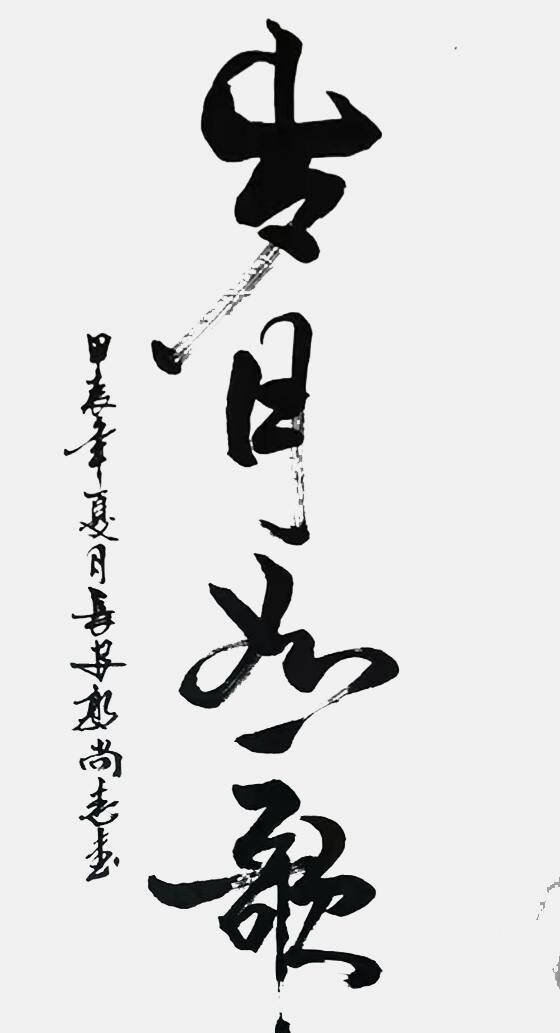 岁月如歌
甲辰年夏月長安郭尚志書